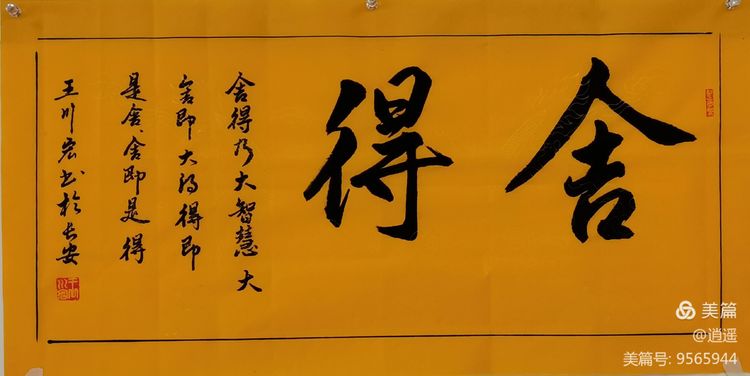 舍得
舍得乃大智慧大
舍即大得得即
是舍、舍即是得
王川宏书於长安
美篇
@逍遥
美篇号: 9565944